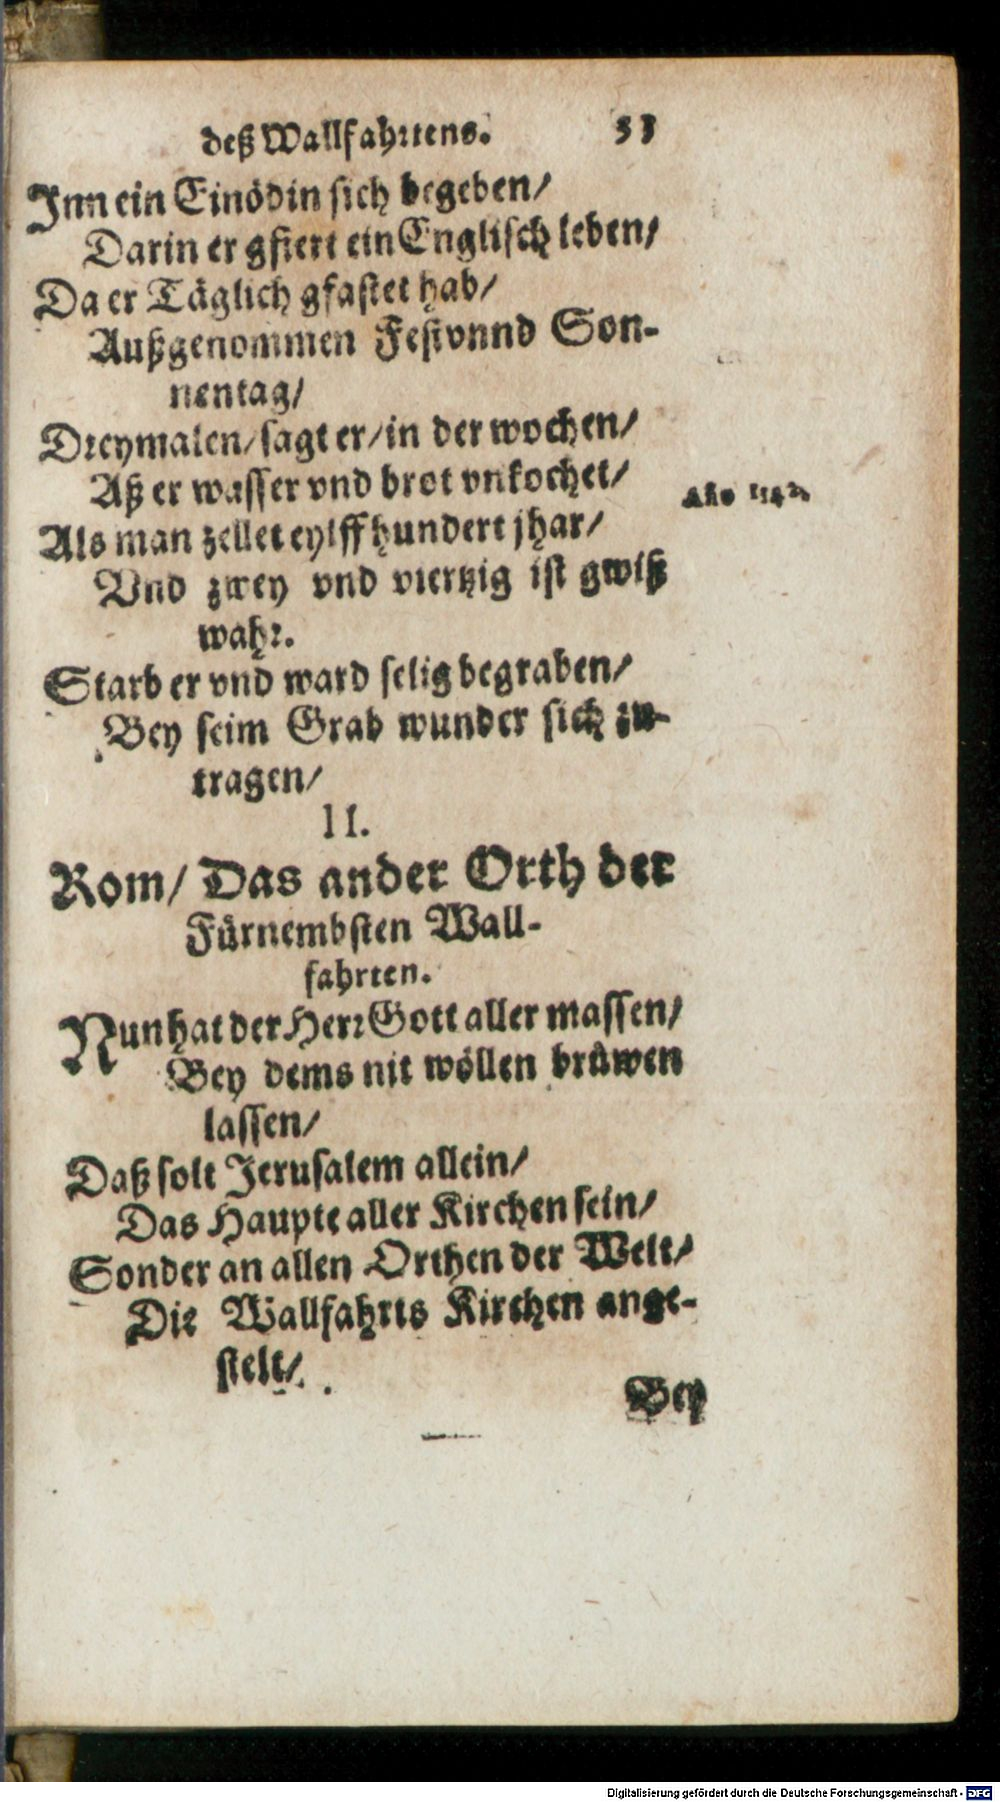 deß Wallfahrtens. 53
Inn ein Einödin sich begeben/
Darin er gfiert ein Englisch leben/
Da er Täglich gfastet hab/
Außgenommen Fest vnnd Son-
nentag/
Dreymalen/ sagt er/ in der wochen/
Aß er wasser vnd brot vnkochet/
Año 1142
Als man zellet eylff hundert jhar/
Vnd zwey vnd viertzig ist gwiß
wahr.
Starb er vnd ward selig begraben/
Bey seim Grab wunder sich zu-
tragen/
II.
Rom/ Das ander Orth der
Fürnembsten Wall-
fahrten.
Nun hat der Herr Gott aller massen/
Bey dems nit wöllen brůwen
lassen/
Daß solt Jerusalem allein/
Das Haupte aller Kirchen sein/
Sonder an allen Orthen der Welt/
Die Wallfahrts Kirchen ange-
stelt/
Bey
Digitalisierung gefördert durch die Deutsche Forschungsgemeinschaft - DFG